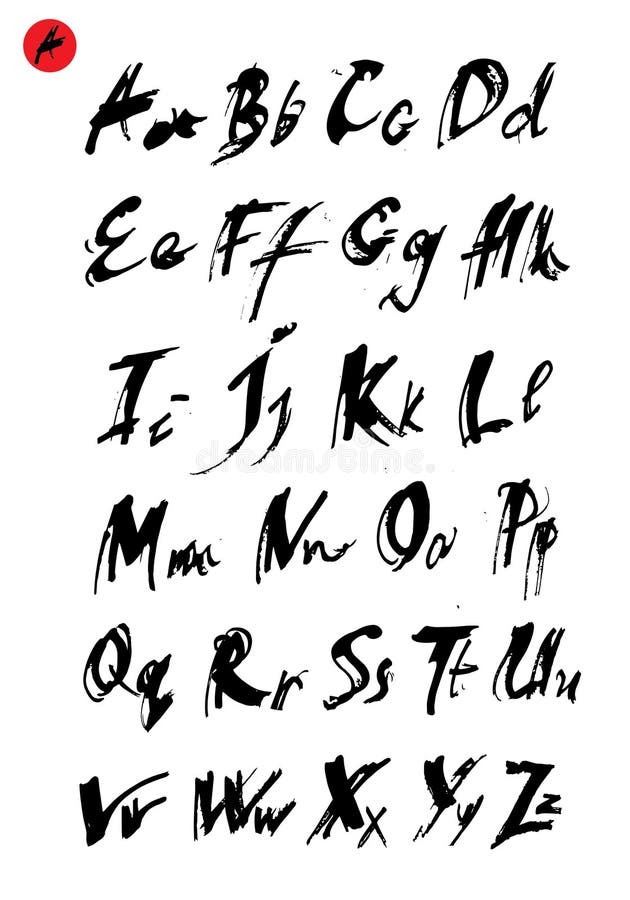 A
Aa Bb Cc Dd
Ee Ff Gg Hh
Ii Jj Kk Ll
dreamstime.
Mm Nn Oo Pp
Qq Rr Ss Tt Uu
Vv Ww Xx Yy Zz